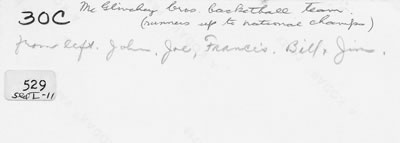 30C
McGlinchey bros. basketball team.
(runners up to national champs)
from left. John, Joe, Francis. Bill, Jim.
529
Sec I-11